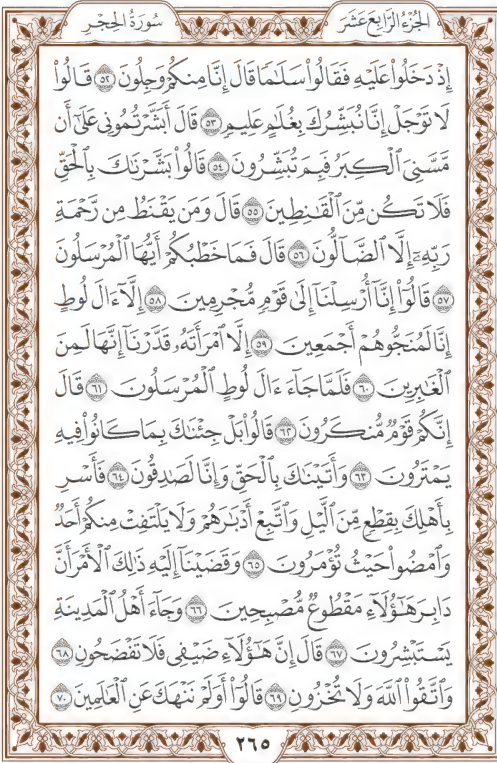 سُورَةُ الحِجْرِ
الجُزْءُ الرَّابِعَ عَشَرَ
إِذْ دَخَلُوا۟ عَلَيْهِ فَقَالُوا۟ سَلَـٰمًا قَالَ إِنَّا مِنكُمْ وَجِلُونَ ٥٢ قَالُوا۟
لَا تَوْجَلْ إِنَّا نُبَشِّرُكَ بِغُلَـٰمٍ عَلِيمٍ ٥٣ قَالَ أَبَشَّرْتُمُونِى عَلَىٰٓ أَن
مَّسَّنِىَ ٱلْكِبَرُ فَبِمَ تُبَشِّرُونَ ٥٤ قَالُوا۟ بَشَّرْنَـٰكَ بِٱلْحَقِّ
فَلَا تَكُن مِّنَ ٱلْقَـٰنِطِينَ ٥٥ قَالَ وَمَن يَقْنَطُ مِن رَّحْمَةِ
رَبِّهِۦٓ إِلَّا ٱلضَّآلُّونَ ٥٦ قَالَ فَمَا خَطْبُكُمْ أَيُّهَا ٱلْمُرْسَلُونَ
٥٧ قَالُوٓا۟ إِنَّآ أُرْسِلْنَآ إِلَىٰ قَوْمٍ مُّجْرِمِينَ ٥٨ إِلَّآ ءَالَ لُوطٍ
إِنَّا لَمُنَجُّوهُمْ أَجْمَعِينَ ٥٩ إِلَّا ٱمْرَأَتَهُۥ قَدَّرْنَآ إِنَّهَا لَمِنَ
ٱلْغَـٰبِرِينَ ٦٠ فَلَمَّا جَآءَ ءَالَ لُوطٍ ٱلْمُرْسَلُونَ ٦١ قَالَ
إِنَّكُمْ قَوْمٌ مُّنكَرُونَ ٦٢ قَالُوا۟ بَلْ جِئْنَـٰكَ بِمَا كَانُوا۟ فِيهِ
يَمْتَرُونَ ٦٣ وَأَتَيْنَـٰكَ بِٱلْحَقِّ وَإِنَّا لَصَـٰدِقُونَ ٦٤ فَأَسْرِ
بِأَهْلِكَ بِقِطْعٍ مِّنَ ٱلَّيْلِ وَٱتَّبِعْ أَدْبَـٰرَهُمْ وَلَا يَلْتَفِتْ مِنكُمْ أَحَدٌ
وَٱمْضُوا۟ حَيْثُ تُؤْمَرُونَ ٦٥ وَقَضَيْنَآ إِلَيْهِ ذَٰلِكَ ٱلْأَمْرَ أَنَّ
دَابِرَ هَـٰٓؤُلَآءِ مَقْطُوعٌ مُّصْبِحِينَ ٦٦ وَجَآءَ أَهْلُ ٱلْمَدِينَةِ
يَسْتَبْشِرُونَ ٦٧ قَالَ إِنَّ هَـٰٓؤُلَآءِ ضَيْفِى فَلَا تَفْضَحُونِ ٦٨
وَٱتَّقُوا۟ ٱللَّهَ وَلَا تُخْزُونِ ٦٩ قَالُوٓا۟ أَوَلَمْ نَنْهَكَ عَنِ ٱلْعَـٰلَمِينَ ٧٠
٢٦٥